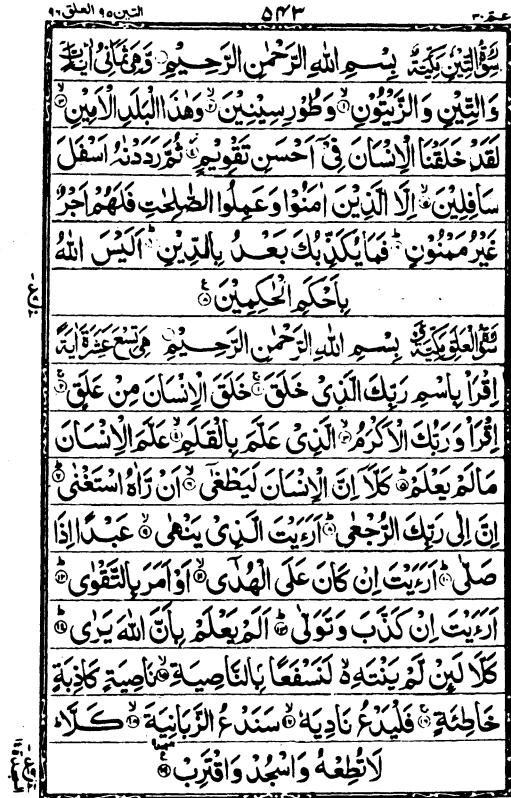 التين ٩٥ العلق ٩٦
٥٤٣
عمّ ٣٠
سُوْرَةُ التِّيْنِ مَكِّيَّةٌ بِسْمِ اللهِ الرَّحْمٰنِ الرَّحِيْمِ وَهِيَ ثَمَانِيْ اٰيَاتٍ
وَالتِّيْنِ وَالزَّيْتُوْنِ ۙ﴿١﴾ وَطُوْرِ سِيْنِيْنَ ۙ﴿٢﴾ وَهٰذَا الْبَلَدِ الْاَمِيْنِ ۙ﴿٣﴾
لَقَدْ خَلَقْنَا الْاِنْسَانَ فِيْٓ اَحْسَنِ تَقْوِيْمٍ ۫﴿٤﴾ ثُمَّ رَدَدْنٰهُ اَسْفَلَ
سَافِلِيْنَ ۙ﴿٥﴾ اِلَّا الَّذِيْنَ اٰمَنُوْا وَعَمِلُوا الصّٰلِحٰتِ فَلَهُمْ اَجْرٌ
غَيْرُ مَمْنُوْنٍ ؕ﴿٦﴾ فَمَا يُكَذِّبُكَ بَعْدُ بِالدِّيْنِ ؕ﴿٧﴾ اَلَيْسَ اللهُ
بِاَحْكَمِ الْحٰكِمِيْنَ ﴿٨﴾
سُوْرَةُ الْعَلَقِ مَكِّيَّةٌ بِسْمِ اللهِ الرَّحْمٰنِ الرَّحِيْمِ هِيَ تِسْعَ عَشَرَةَ اٰيَةً
اِقْرَاْ بِاسْمِ رَبِّكَ الَّذِيْ خَلَقَ ۚ﴿١﴾ خَلَقَ الْاِنْسَانَ مِنْ عَلَقٍ ۚ﴿٢﴾
اِقْرَاْ وَرَبُّكَ الْاَكْرَمُ ۙ﴿٣﴾ الَّذِيْ عَلَّمَ بِالْقَلَمِ ۙ﴿٤﴾ عَلَّمَ الْاِنْسَانَ
مَا لَمْ يَعْلَمْ ؕ﴿٥﴾ كَلَّآ اِنَّ الْاِنْسَانَ لَيَطْغٰٓى ۙ﴿٦﴾ اَنْ رَّاٰهُ اسْتَغْنٰى ؕ﴿٧﴾
اِنَّ اِلٰى رَبِّكَ الرُّجْعٰى ؕ﴿٨﴾ اَرَءَيْتَ الَّذِيْ يَنْهٰى ۙ﴿٩﴾ عَبْدًا اِذَا
صَلّٰى ؕ﴿١٠﴾ اَرَءَيْتَ اِنْ كَانَ عَلَى الْهُدٰٓى ۙ﴿١١﴾ اَوْ اَمَرَ بِالتَّقْوٰى ؕ﴿١٢﴾
اَرَءَيْتَ اِنْ كَذَّبَ وَتَوَلّٰى ؕ﴿١٣﴾ اَلَمْ يَعْلَمْ بِاَنَّ اللهَ يَرٰى ؕ﴿١٤﴾
كَلَّا لَئِنْ لَّمْ يَنْتَهِ ۙ لَنَسْفَعًا بِالنَّاصِيَةِ ۙ﴿١٥﴾ نَاصِيَةٍ كَاذِبَةٍ
خَاطِئَةٍ ۚ﴿١٦﴾ فَلْيَدْعُ نَادِيَهٗ ۙ﴿١٧﴾ سَنَدْعُ الزَّبَانِيَةَ ۙ﴿١٨﴾ كَلَّا ؕ
لَا تُطِعْهُ وَاسْجُدْ وَاقْتَرِبْ ﴿١٩﴾
السجدة ١٤